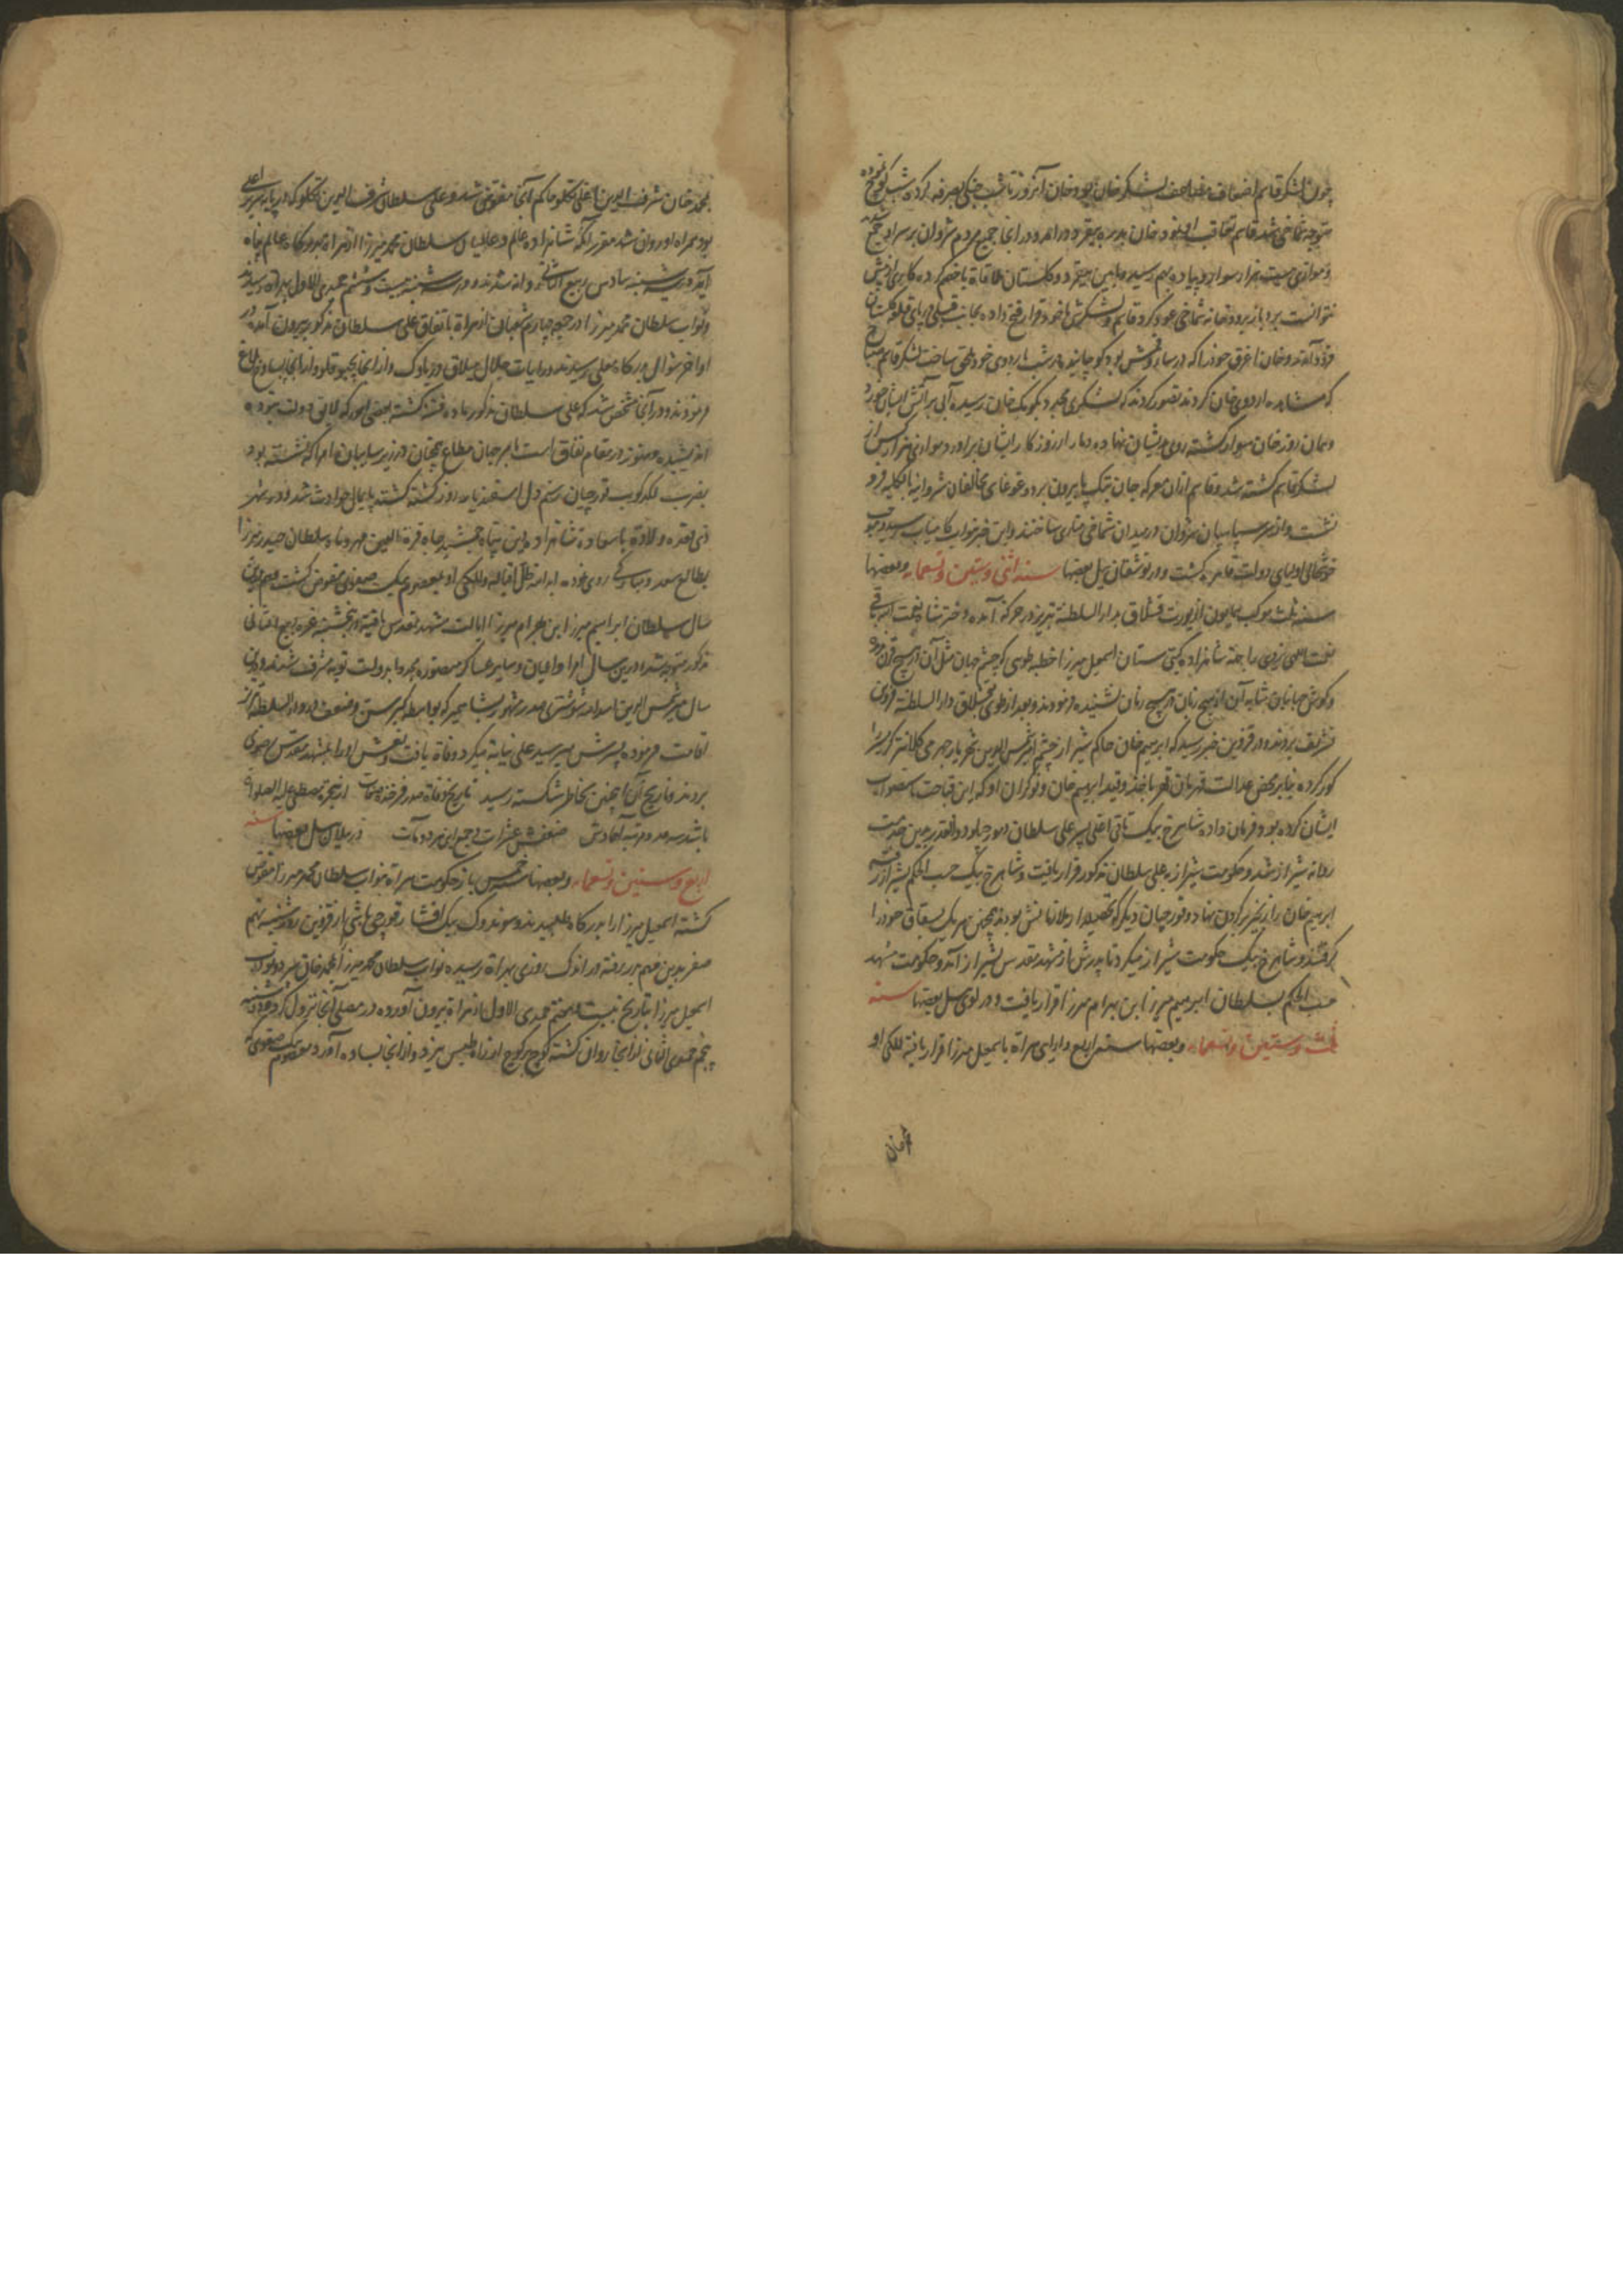 چون لشکر قاسم اضعاف مضاعف لشکر خان بود خان آنروز تا شب جنکی بصرفه کرده شب کوچ نموده
متوجه شماخی شد قاسم تعاقب او نمود خان بدره بیقرد درآمد و در آنجا جمیع مردم شروان بر سر او جمع شده
و موازی بیست هزار سوار و پیاده بهم رسید و مابین بیقرد و کلستان ملاقاة با خصم کرده کاری از پیش
نتوانست برد باز برودخانه شماخی عود کرد قاسم و لشکرش با خود قرار فتح داده بجانب قبله و پای قلعه کلستان
فرود آمدند و خان اغرق خود را که در سار قمش بود کوچانیده در شب باردوی خود ملحق ساخت لشکر قاسم صباح
که مشاهده اردوی خان کردند تصور کردند که لشکری مجدد بکومک خان رسیده آبی بر آتش ایشان خورد
و همان روز خان سوار کشته روی بدیشان نهاد و دمار از روزکار ایشان برآورد موازی هزار کس از
لشکر قاسم کشته شد و قاسم از آن معرکه جان بتک پا بیرون برد و غوغای مخالفان شروانیه بالکلیه فرو
نشست و از سر سپاهیان شروان در میدان شماخی مناری ساختند و این خبر بنواب کامیاب رسید موجب
خوشحالی اولیای دولت قاهره کشت و در توشقان ییل بعضها سنه اثنی و ستین و تسعمایه و بعضها
سنه ثلث موکب همایون از یورت قشلاق بدار السلطنة تبریز در حرکت آمده دختر شاه نعمت الله باقی
نعمت اللهی یزدی را جهة شاهزاده کیتی ستان اسمعیل میرزا خطبه طوی که چشم جهان مثل آن در هیچ قرن ندیده
و کوش جهانیان مشابه آن از هیچ زبان در هیچ زمان نشنیده فرمودند و بعد از طوی بییلاق دار السلطنه قزوین
تشریف بردند و در قزوین خبر رسید که ابرهیم خان حاکم شیراز چشم امیر شمس الدین شهریار جهرمی کلانتر کربال را
کور کرده بنا بر محض عدالت قهرمان قهر باخذ و قید ابرهیم خان و نوکران او که این قباحت باستصواب
ایشان کرده بود فرمان داده شاهرخ بیک تاتی اغلی پسر علی سلطان دمور چیلو ذو القدر بدین خدمت
روانه شیراز شد و حکومت شیراز به علی سلطان مذکور قرار یافت و شاهرخ بیک حسب الحکم بشیراز رفته
ابرهیم خان را زنجیر بر کردن نهاد و قورچیان دیکر که تحصیلدار ملازمانش بودند همچنین هر یک یساق خود را
کرفتند و شاهرخ بیک حکومت شیراز میکرد تا پدرش از مشهد مقدس بشیراز آمد و حکومت مشهد
حسب الحکم بسلطان ابرهیم میرزا ابن بهرام میرزا قرار یافت و در لوی ییل بعضها سنه
ثلث و ستین و تسعمایه و بعضها سنه اربع دارایی هراة باسمعیل میرزا قرار یافته للکی او
بمحمد خان شرف الدین اغلی تکلو حاکم آنجا مفوض شد و علی سلطان شرف الدین تکلو که در پایه سریر اعلی
بود همراه او روان شد مقرر آنکه شاهزاده عالم و عالمیان سلطان محمد میرزا از هراة بدرکاه عالم پناه
آید و در شنبه سادس ربیع الثانی روانه شدند و در سه شنبه بیست و ششم جمدی الاول بهراة رسیدند
و نواب سلطان محمد میرزا در جمعه چهارم شعبان از هراة باتفاق علی سلطان مذکور بیرون آمده در
اواخر شوال بدرکاه معلی رسیدند و رایات جلال ییلاق زیاوک و از آنجا بچبوقلو و از آنجا بساوخ بلاغ
فرمودند و در آنجا مشخص شد که علی سلطان مذکور ماده فتنه کشته بعضی امور که لایق دولت نبوده
اندیشیده و هنوز در مقام نفاق است بامر جهان مطاع همچنان در زیر سایبان امرا که نشسته بود
بضرب لکدکوب قورچیان رستم دل اسفندیار روز کشته کشته پایمال حوادث شد و در شهر
ذی قعده ولادة باسعادة شاهزاده دین پناه جمشید جاه قرة العین مهر و ماه سلطان حیدر میرزا
بطالع سعد و مبارک روی نمود مد الله ظل اقباله و للکی او بمعصوم بیک صفوی مفوض کشت و هم درین
سال سلطان ابرهیم میرزا ابن بهرام میرزا ایالت مشهد مقدس یافته در پنجشنبه غره ربیع الثانی
مذکور متوجه شد و درین سال امرا و اعیان و سایر عساکر منصوره مجددا بدولت توبه مشرف شدند و درین
سال میر شمس الدین اسد الله شوشتری صدر مشهور بشاه میر که بواسطه کبر سن و ضعف در دار السلطنة تبریز
اقامت فرموده پسرش میر سید علی نیابة میکرد وفاة یافت و نعش او را بمشهد مقدس رضوی
بردند و تاریخ آن همچنین بخاطر شکسته رسید تاریخ وفاة صدر فرخنده صفات از هجرة مصطفی علیه الصلواة
باشد سه صد و مرتبه آحادش ضعف عشرات و جمع این هر دو مآت و در ییلان ییل بعضها سنه
اربع و ستین و تسعمایه و بعضها سنه خمس باز حکومت هراة بنواب سلطان محمد میرزا مفوض
کشته اسمعیل میرزا را بدرکاه طلبیدند و سوندوک بیک افشار قورچی باشی از قزوین روز شنبه نهم
صفر بدین مهم بدر رفته در اندک روزی بهراة رسیده نواب سلطان محمد میرزا بمحمد خان سپرد و نواب
اسمعیل میرزا بتاریخ بیست هفتم جمدی الاول از هراة بیرون آورده در مصلی آنجا نزول کرد و در دوشنبه
پنجم جمدی الثانی از آنجا روان کشته کوچ بر کوچ او را از راه طبس بیزد و از آنجا بساوه آورد معصوم بیک صفوی که